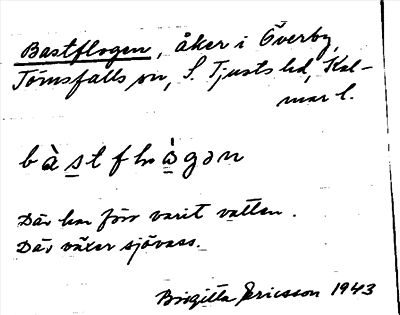 Bastflogen, åker i Överby,
Törnsfalls sn, S. Tjusts hd, Kal-
mar l.
Där har förr varit vatten.
Där växer sjövass.
Birgitta Ericsson 1943